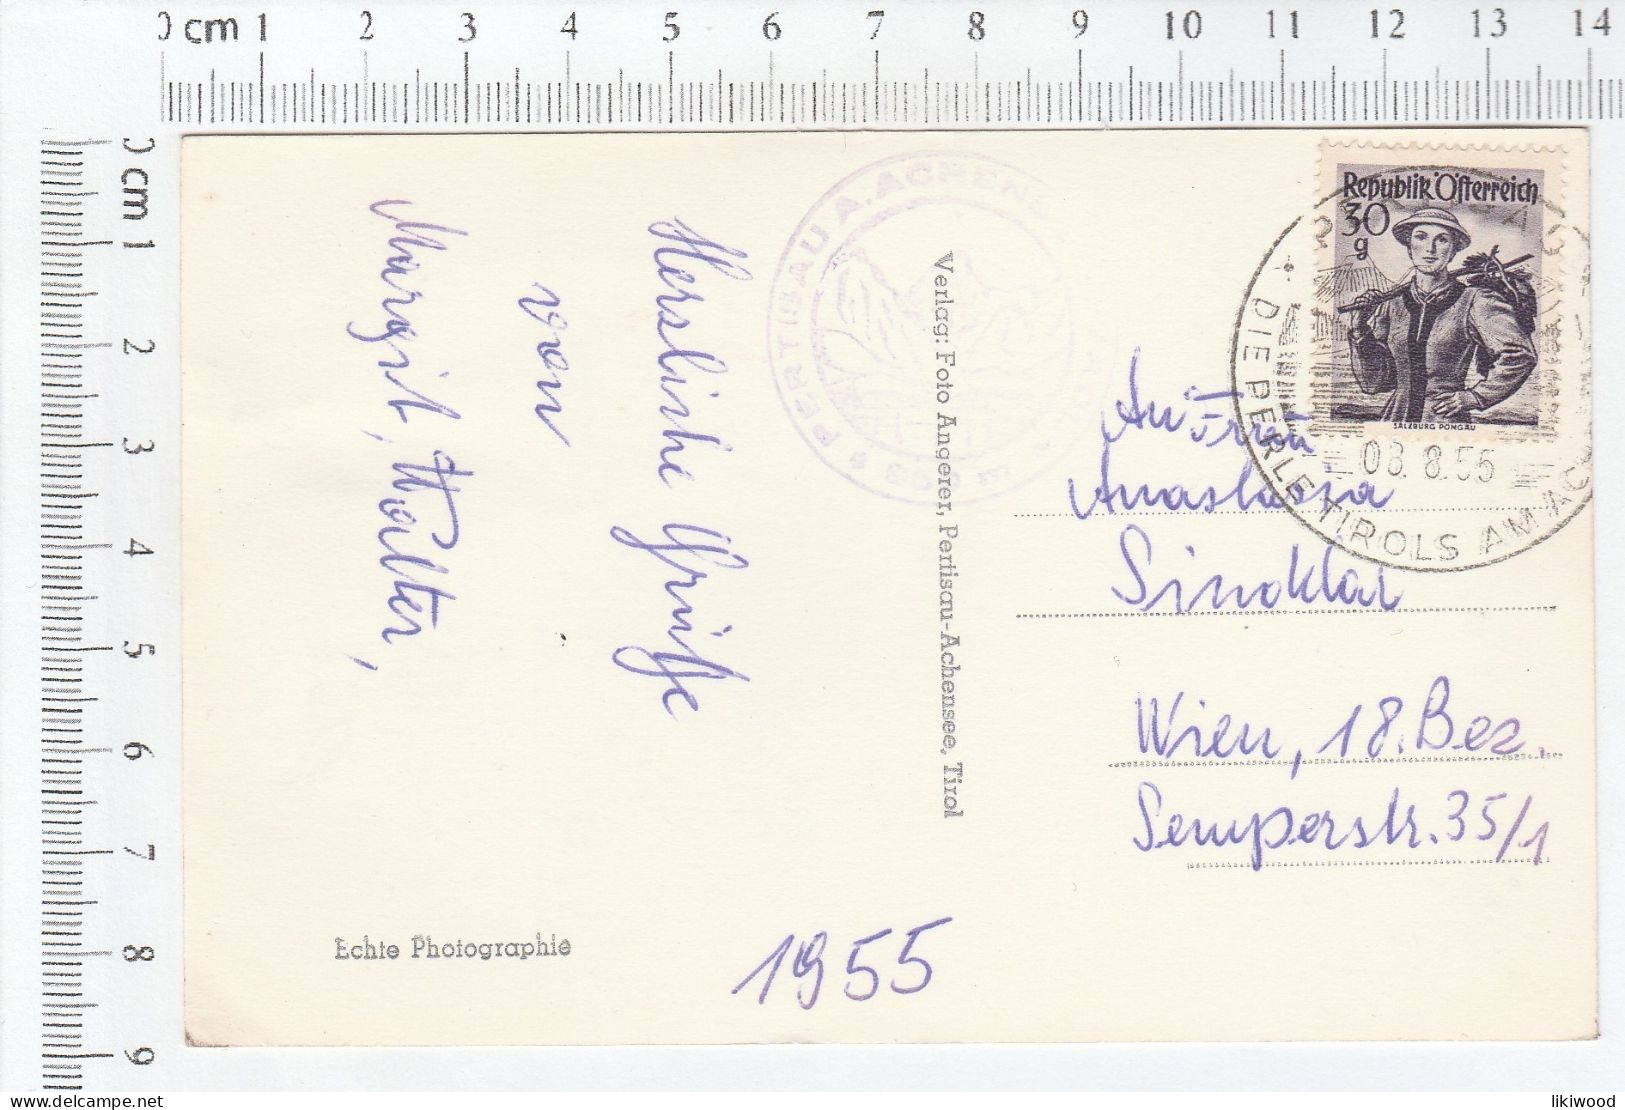 0 cm 1 2 3 4 5 6 7 8 9 10 11 12 13 14
0 cm 1 2 3 4 5 6 7 8 9
PERTISAU A. ACHENS
Republik Österreich
30
g
SALZBURG PONGAU
DIE PERLE TIROLS AM AC
08.8.55
Herzliche Grüße
von
Margit, Walter,
Verlag: Foto Angerer, Pertisau-Achensee, Tirol
An Frau
Anastasia
Sinoklar
Wien, 18. Bez.
Semperstr. 35/1
Echte Photographie
1955
likiwood